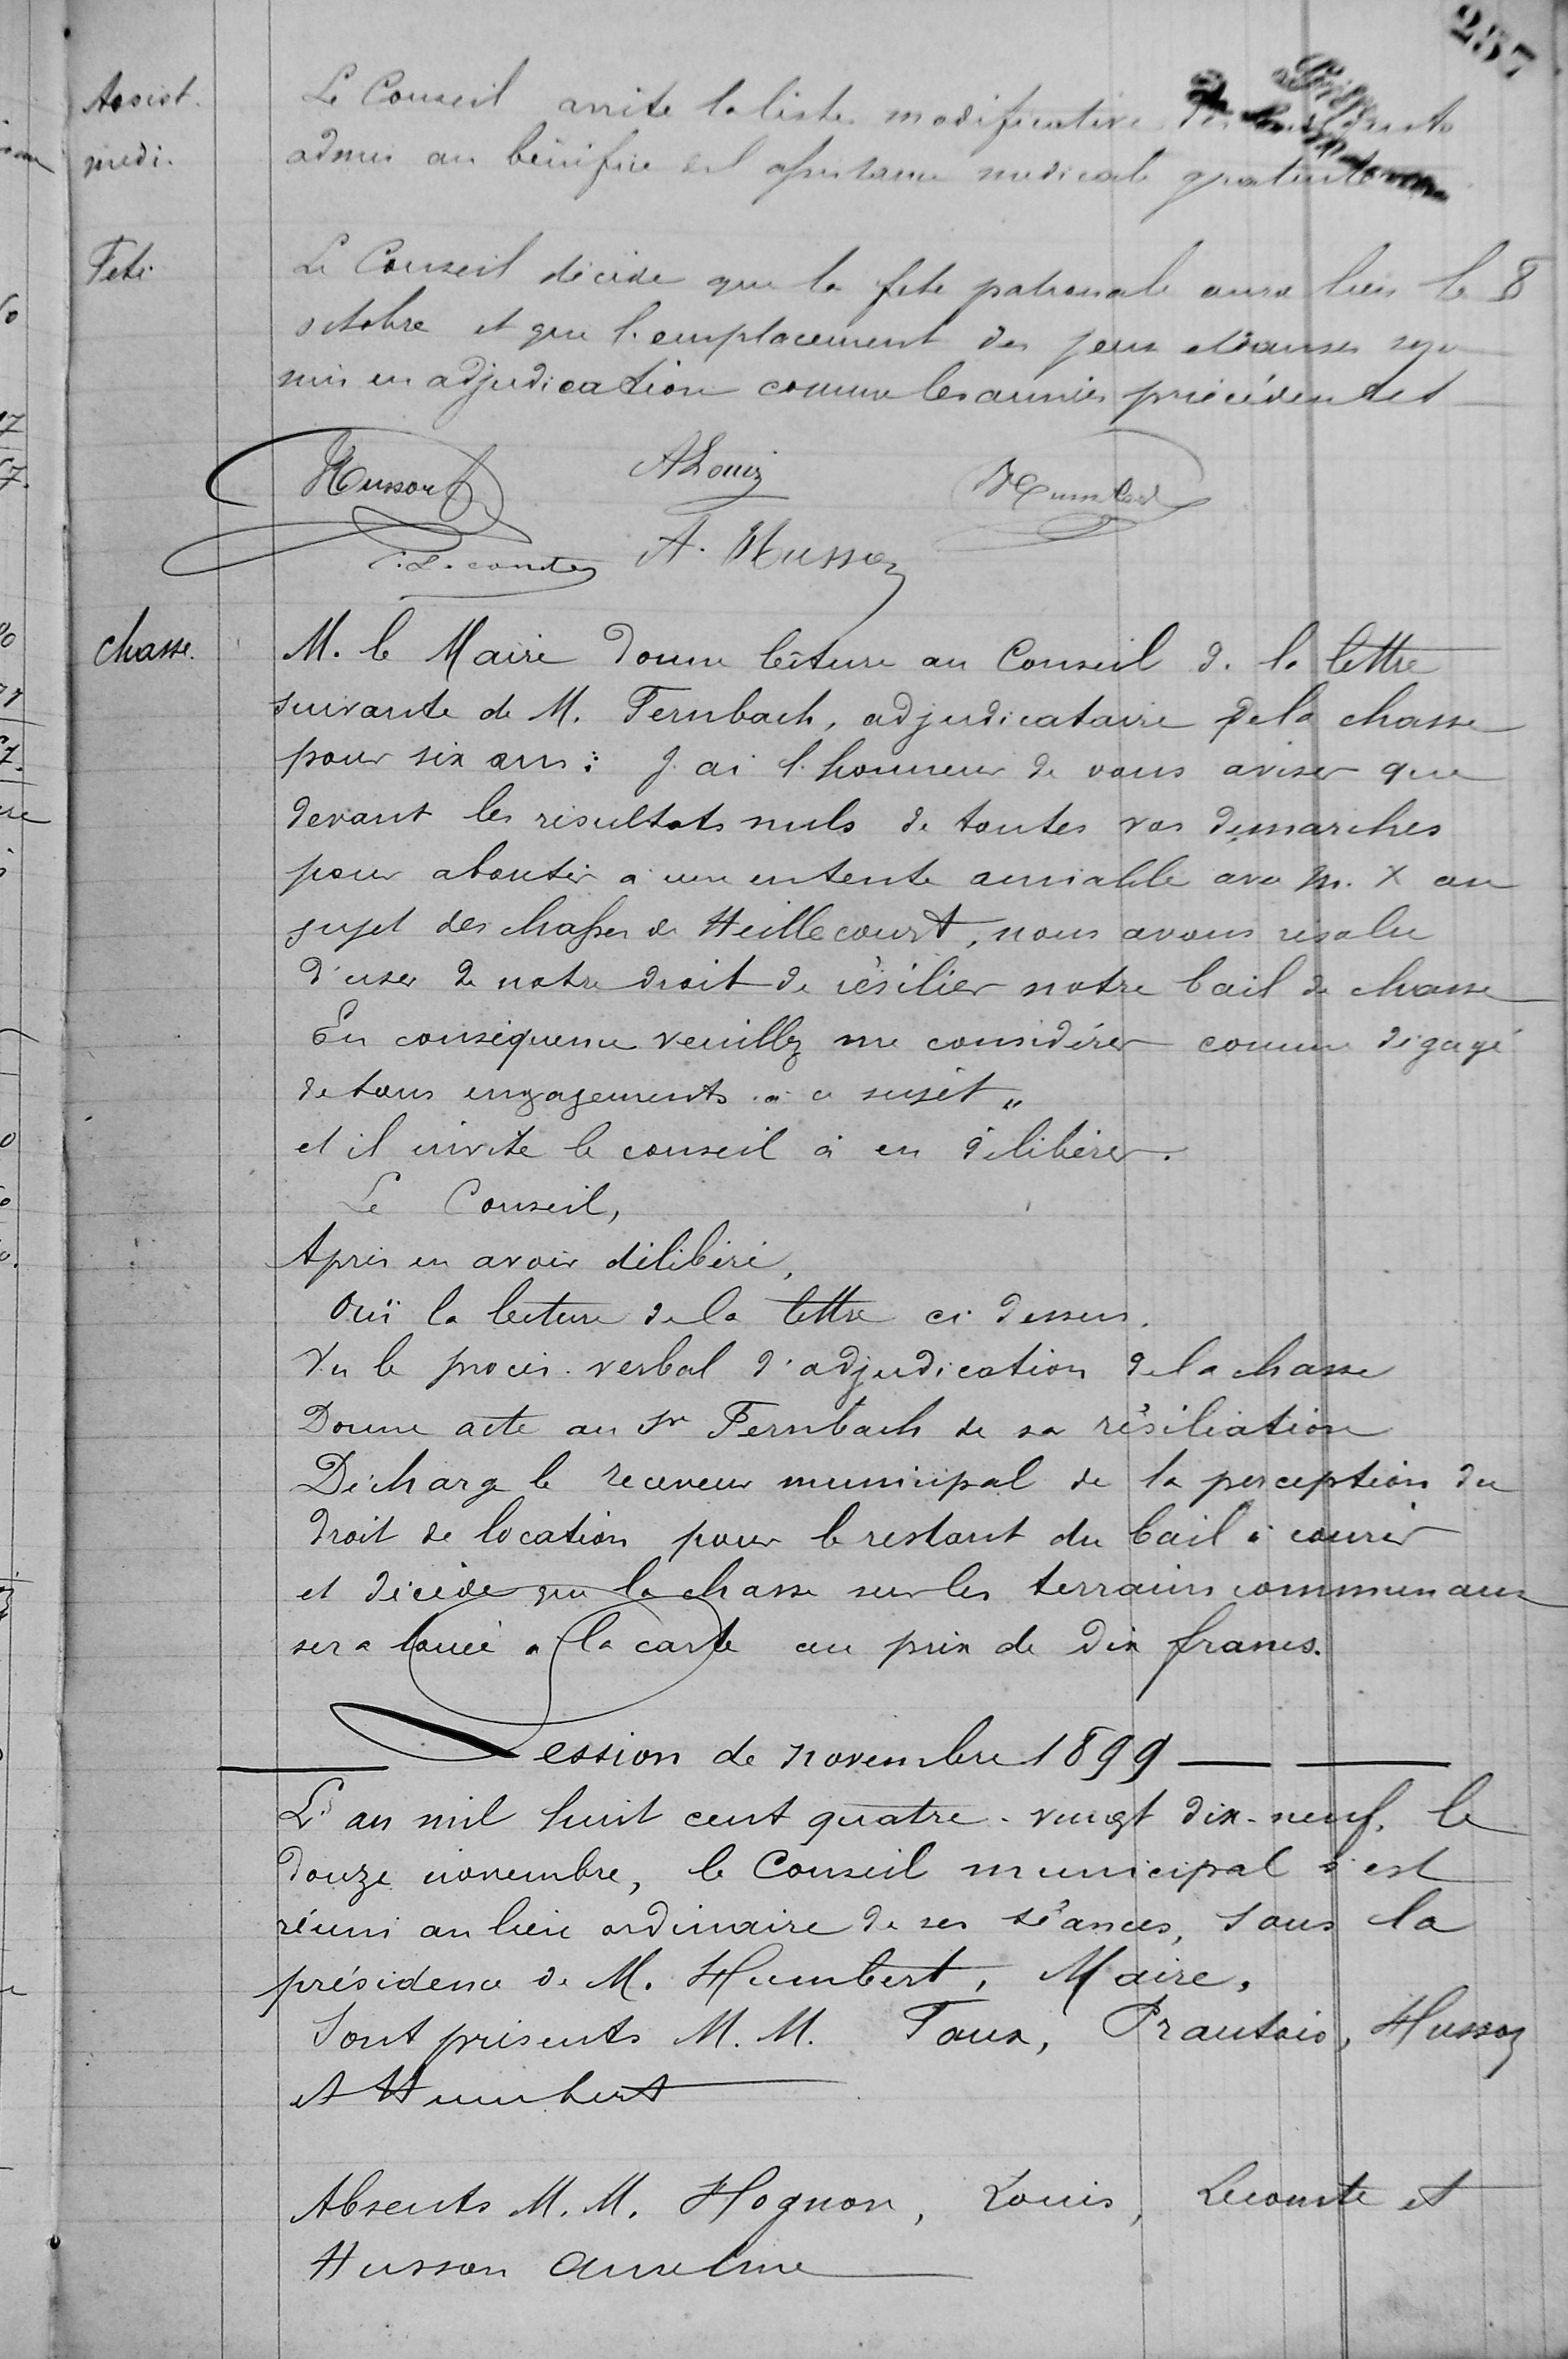 257
Assist. Le Conseil arrête la liste modificative des
médi. admis au bénéfice de l'assistance médicale gratuite
Fête Le Conseil décide que la fête patronale aura lieu le 8
octobre et que l'emplacement des jeux et danses sera
mis en adjudication comme les années précédentes
Husson ALouis Humbert
Lecomte A. Husson
Chasse. M. le Maire donne lecture au Conseil de la lettre
suivante de M. Fernbach, adjudicataire de la chasse
pour six ans : J'ai l'honneur de vous aviser que
devant les résultats nuls de toutes vos démarches
pour aboutir à une entente amiable avec M. X au
sujet des chasses de Heillecourt, nous avons résolu
d'user de notre droit de résilier notre bail de chasse
En conséquence veuillez me considérer comme dégagé
de tous engagements à ce sujet "
et il invite le conseil à en délibérer.
Le Conseil,
Après en avoir délibéré,
Ouï la lecture de la lettre ci dessus.
Vu le procès-verbal d'adjudication de la chasse
Donne acte au Sr Fernbach de sa résiliation
Décharge le receveur municipal de la perception du
droit de location pour le restant du bail à courir
et décide que la chasse sur les terrains communaux
sera louée à la carte au prix de dix francs.
Session de novembre 1899
L'an mil huit cent quatre-vingt dix-neuf, le
douze novembre, le Conseil municipal s'est
réuni au lieu ordinaire de ses séances, sous la
présidence de M. Humbert, Maire,
Sont présents M. M. Toux, Frantois, Husson
et Humbert
Absents M. M. Hognon, Louis, Lecomte et
Husson Anselme